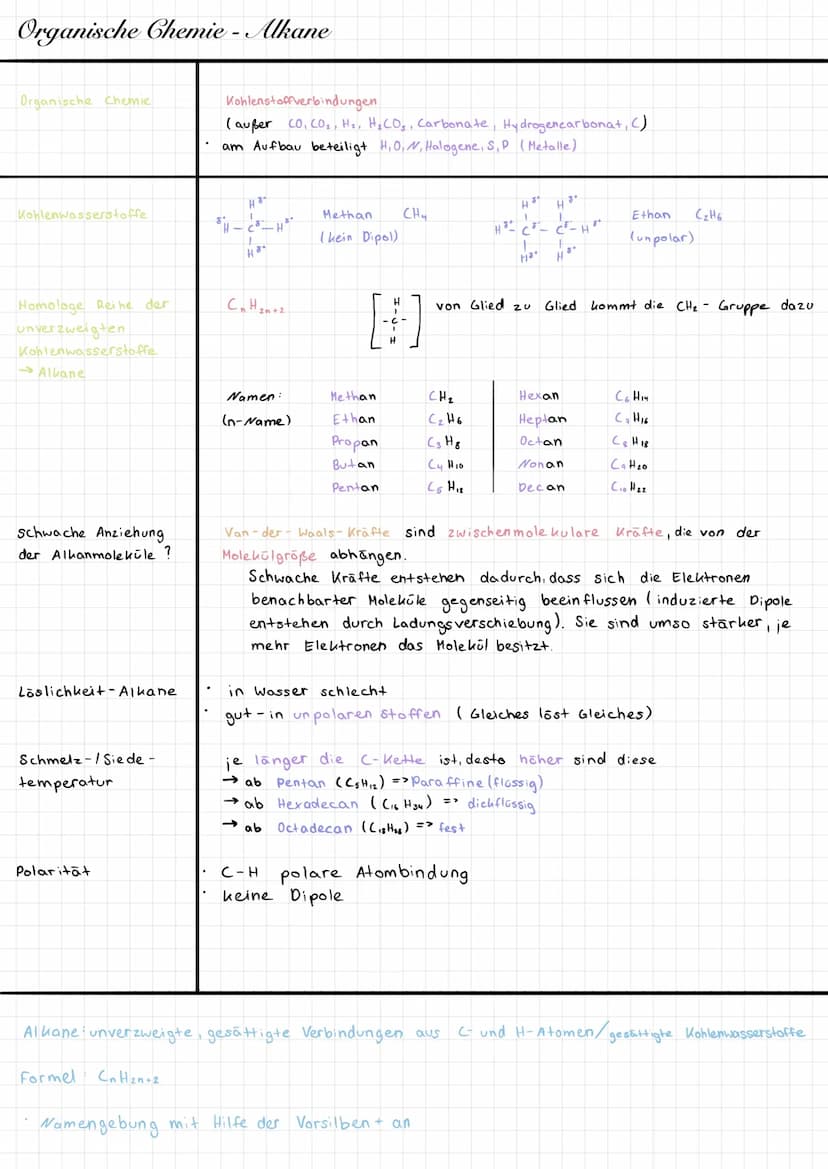 Organische Chemie - Alkane
Organische Chemie
Kohlenstoffverbindungen
(außer CO, CO₂, H₂, H₂CO₃, Carbonate, Hydrogencarbonat, C)
· am Aufbau beteiligt H, O, N, Halogene, S, P (Metalle)
Kohlenwasserstoffe
Hδ+
δ+H - Cδ- - Hδ+
Hδ+
Methan CH₄
(kein Dipol)
Hδ+ Hδ+
Hδ+ - Cδ- - Cδ- - Hδ+
Hδ+ Hδ+
Ethan C₂H₆
(unpolar)
Homologe Reihe der
unverzweigten
Kohlenwasserstoffe
→ Alkane
CₙH₂ₙ₊₂
H
- C -
H
von Glied zu Glied kommt die CH₂ - Gruppe dazu
Namen:
(n-Name)
Methan CH₂
Ethan C₂H₆
Propan C₃H₈
Butan C₄H₁₀
Pentan C₅H₁₂
Hexan C₆H₁₄
Heptan C₇H₁₆
Octan C₈H₁₈
Nonan C₉H₂₀
Decan C₁₀H₂₂
Schwache Anziehung
der Alkanmoleküle?
Van-der-Waals-Kräfte sind zwischenmolekulare Kräfte, die von der
Molekülgröße abhängen.
Schwache Kräfte entstehen dadurch, dass sich die Elektronen
benachbarter Moleküle gegenseitig beeinflussen (induzierte Dipole
entstehen durch Ladungsverschiebung). Sie sind umso stärker, je
mehr Elektronen das Molekül besitzt.
Löslichkeit-Alkane
· in Wasser schlecht
· gut - in unpolaren Stoffen (Gleiches löst Gleiches)
Schmelz-/Siede-
temperatur
je länger die C-Kette ist, desto höher sind diese
→ ab Pentan (C₅H₁₂) => Paraffine (flüssig)
→ ab Hexadecan (C₁₆H₃₄) => dickflüssig
→ ab Octadecan (C₁₈H₃₈) => fest
Polarität
· C-H polare Atombindung
· keine Dipole
Alkane: unverzweigte, gesättigte Verbindungen aus C- und H-Atomen/gesättigte Kohlenwasserstoffe
Formel: CₙH₂ₙ₊₂
· Namengebung mit Hilfe der Vorsilben + an